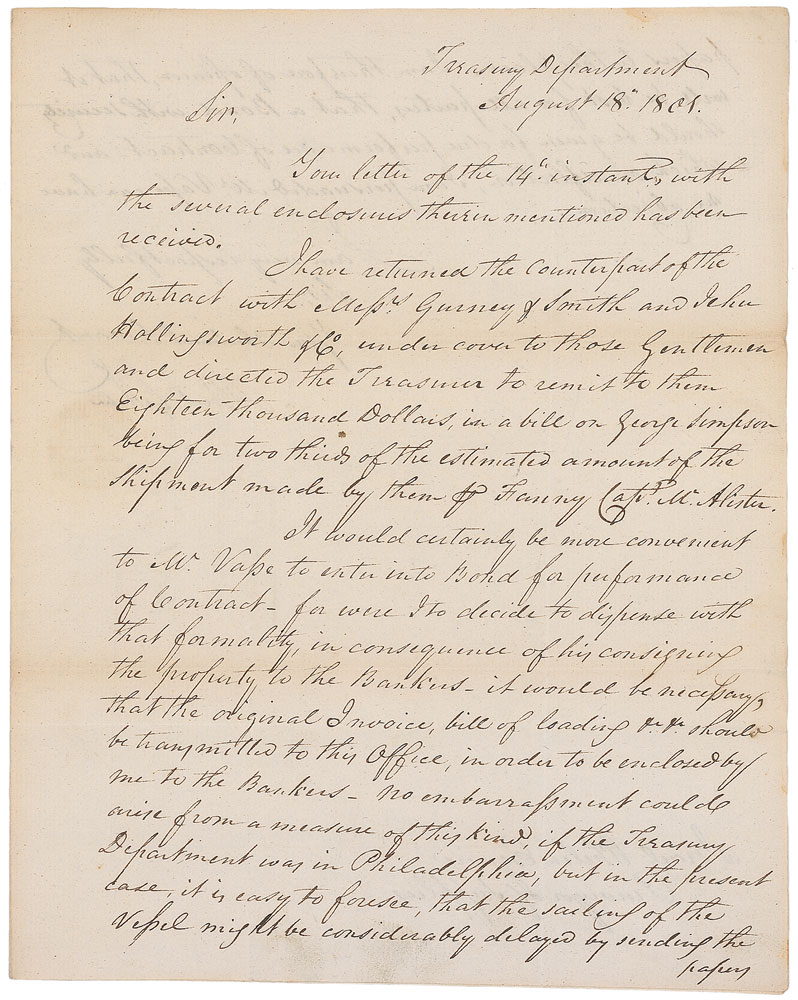 Treasury Department
August 18th. 1801.
Sir,
Your letter of the 14th. instant, with
the several enclosures therein mentioned has been
received.
I have returned the Counterpart of the
Contract with Messrs Gurney & Smith and John
Hollingsworth & Co, under cover to those Gentlemen
and directed the Treasurer to remit to them
Eighteen thousand Dollars, in a bill on George Simpson
being for two thirds of the estimated amount of the
shipment made by them P Fanny Capt. Mc. Alister.
It would certainly be more convenient
to Mr. Vasse to enter into Bond for performance
of Contract - for were I to decide to dispense with
that formality, in consequence of his consigning
the property to the Bankers - it would be necessary,
that the original Invoice, bill of loading &c. &c. should
be transmitted to this Office, in order to be enclosed by
me to the Bankers - no embarrassment could
arise from a measure of this kind, if the Treasury
Department was in Philadelphia, but in the present
case, it is easy to foresee, that the sailing of the
Vessel might be considerably delayed by sending the
papers